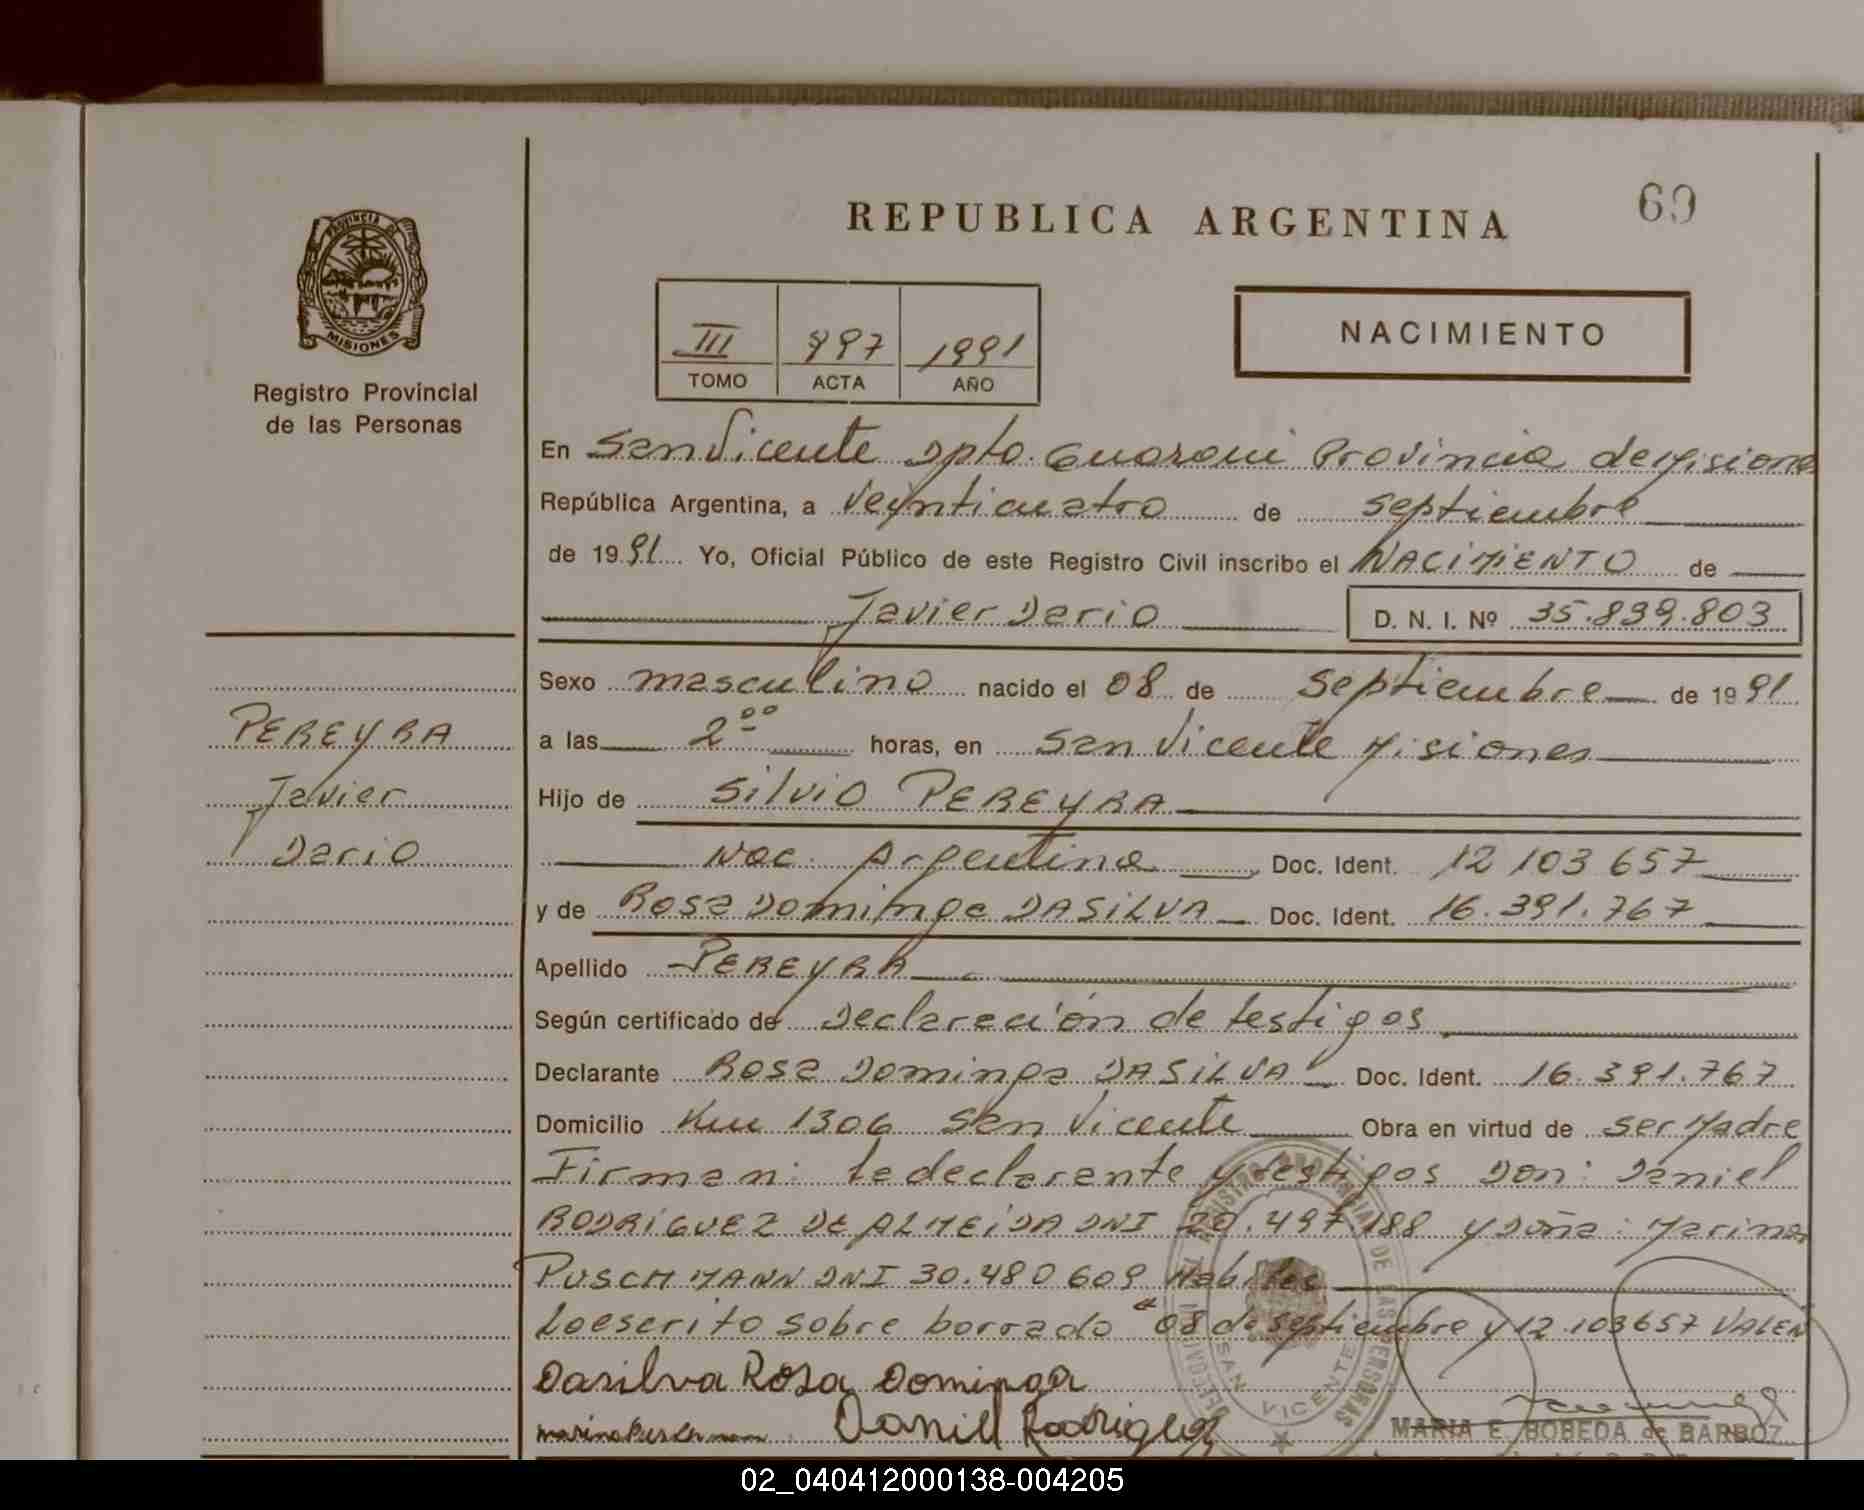 69
REPUBLICA ARGENTINA
PROVINCIA DE
MISIONES
Registro Provincial
de las Personas
III 997 1991
TOMO ACTA AÑO
NACIMIENTO
En San Vicente Dpto. Guarani Provincia de Misiones
República Argentina, a Veynticuatro de septiembre
de 1991 Yo, Oficial Público de este Registro Civil inscribo el NACIMIENTO de
Javier Dario D. N. I. Nº 35.839.803
Sexo masculino nacido el 08 de septiembre de 1991
PEREYRA
Javier
Dario
a las 2 00 horas, en San Vicente Misiones
Hijo de Silvio PEREYRA
Nac. Argentina Doc. Ident. 12 103 657
y de Rosa Dominga DASILVA Doc. Ident. 16.391.767
Apellido PEREYRA
Según certificado de Declaración de testigos
Declarante Rosa Dominga DASILVA Doc. Ident. 16.391.767
Domicilio Km 1306 San Vicente Obra en virtud de ser Madre
Firman: La declarante y testigos Don: Daniel
RODRIGUEZ DE ALMEIDA DNI 20.497.188 y Doña: Marina
PUSCHMANN DNI 30.480 609 Habiles
Lo escrito sobre borrado "08 de septiembre y 12.103657 VALEN
Dasilva Rosa Dominga
Daniel Rodriguez
SAN VICENTE
MARIA E. BOBEDA de BARBOZ
02_040412000138-004205